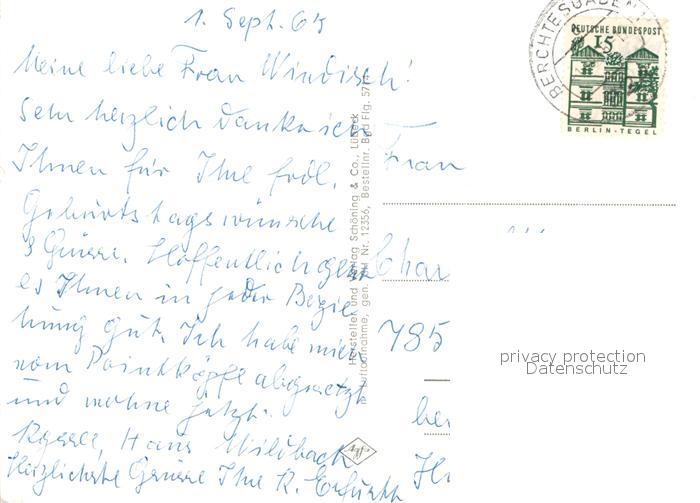 1. Sept. 65
Meine liebe Frau Windisch!
Sehr herzlich danke ich
Ihnen für Ihre frdl.
Geburtstagswünsche
& Grüsse. Hoffentlich geht
es Ihnen in jeder Bezie
hung gut. Ich habe mich
vom
abgesetzt
und wohne jetzt.
Haus Wildbach
Herzlichste Grüsse Ihre K.
Hersteller und Verlag Schöning & Co., Lübeck
Luftaufnahme, gen. Nr. 12356, Bestellnr. Bgd Flg. 57
BERCHTESGADEN
DEUTSCHE BUNDESPOST
15
BERLIN-TEGEL
Frau
Char
785
privacy protection
Datenschutz
bei